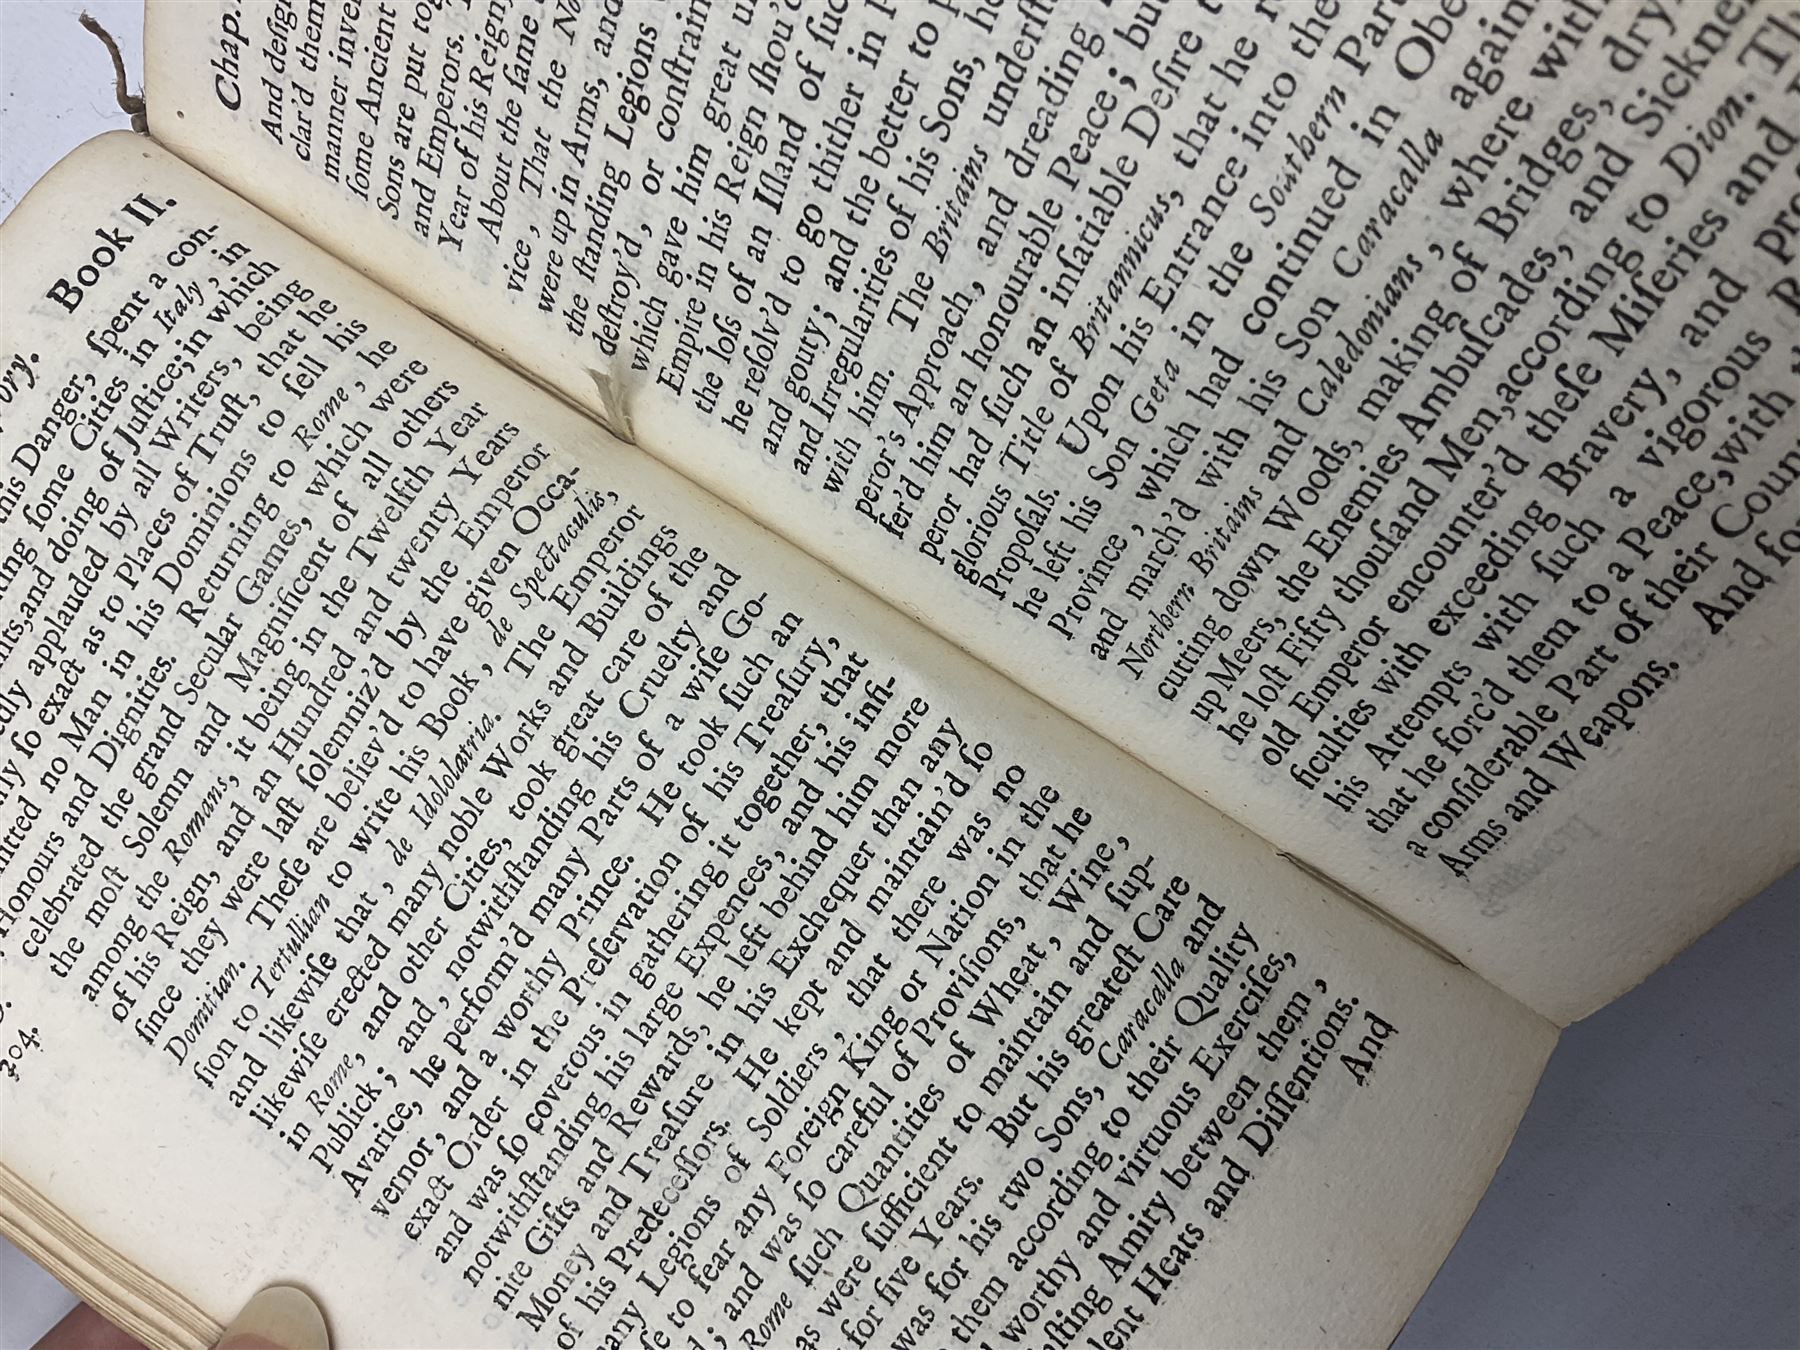 ory. Book II.
this Danger, spent a con-
ing some Cities in Italy, in
nts, and doing of Justice; in which
edly applauded by all Writers, being
ly so exact as to Places of Trust, that he
itted no Man in his Dominions to sell his
Honours and Dignities. Returning to Rome, he
celebrated the grand Secular Games, which were
the most Solemn and Magnificent of all others
among the Romans, it being in the Twelfth Year
of his Reign, and an Hundred and twenty Years
since they were last solemniz'd by the Emperor
Domitian. These are believ'd to have given Occa-
sion to Tertullian to write his Book, de Spectaculis,
and likewise that, de Idololatria. The Emperor
likewise erected many noble Works and Buildings
in Rome, and other Cities, took great care of the
Publick; and, notwithstanding his Cruelty and
Avarice, he perform'd many Parts of a wise Go-
vernor, and a worthy Prince. He took such an
exact Order in the Preservation of his Treasury,
and was so covetous in gathering it together, that
notwithstanding his large Expences, and his infi-
nite Gifts and Rewards, he left behind him more
Money and Treasure in his Exchequer than any
of his Predecessors. He kept and maintain'd so
any Legions of Soldiers, that there was no
se to fear any Foreign King or Nation in the
d; and was so careful of Provisions, that he
Rome such Quantities of Wheat, Wine,
as were sufficient to maintain and sup-
for five Years. But his greatest Care
was for his two Sons, Caracalla and
them according to their Quality
worthy and virtuous Exercises,
sting Amity between them,
lent Heats and Dissentions.
And
204.
Chap.
And desig
clar'd them
manner inve
some Ancient
Sons are put tog
and Emperors.
Year of his Reign,
About the same
vice, That the No
were up in Arms, and
the standing Legions
destroy'd, or constrain
which gave him great u
Empire in his Reign shou'd
the loss of an Island of suc
he resolv'd to go thither in P
and gouty; and the better to p
and Irregularities of his Sons, he
with him. The Britains underst
peror's Approach, and dreading
fer'd him an honourable Peace; bu
peror had such an insatiable Desire t
glorious Title of Britannicus, that he r
Proposals. Upon his Entrance into the
he left his Son Geta in the Southern Par
Province, which had continued in Obe
and march'd with his Son Caracalla again
Northern Britains and Caledonians, where with
cutting down Woods, making of Bridges, dry
up Meers, the Enemies Ambuscades, and Sickne
he lost Fifty thousand Men, according to Dion. Th
old Emperor encounter'd these Miseries and
ficulties with exceeding Bravery, and pro
his Attempts with such a vigorous R
that he forc'd them to a Peace, with
a considerable Part of their Coun
Arms and Weapons. And fo